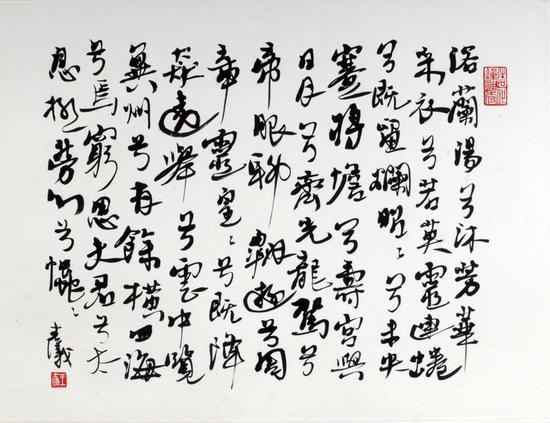 浴蘭湯兮沐芳華
采衣兮若英靈連蜷
兮既留爛昭々兮未央
蹇將憺兮壽宮與
日月兮齊光龍駕兮
帝服聊翱遊兮周
章靈皇々兮既降
猋遠舉兮雲中覽
冀州兮有餘橫四海
兮焉窮思夫君兮太
息極勞心兮𢥞々